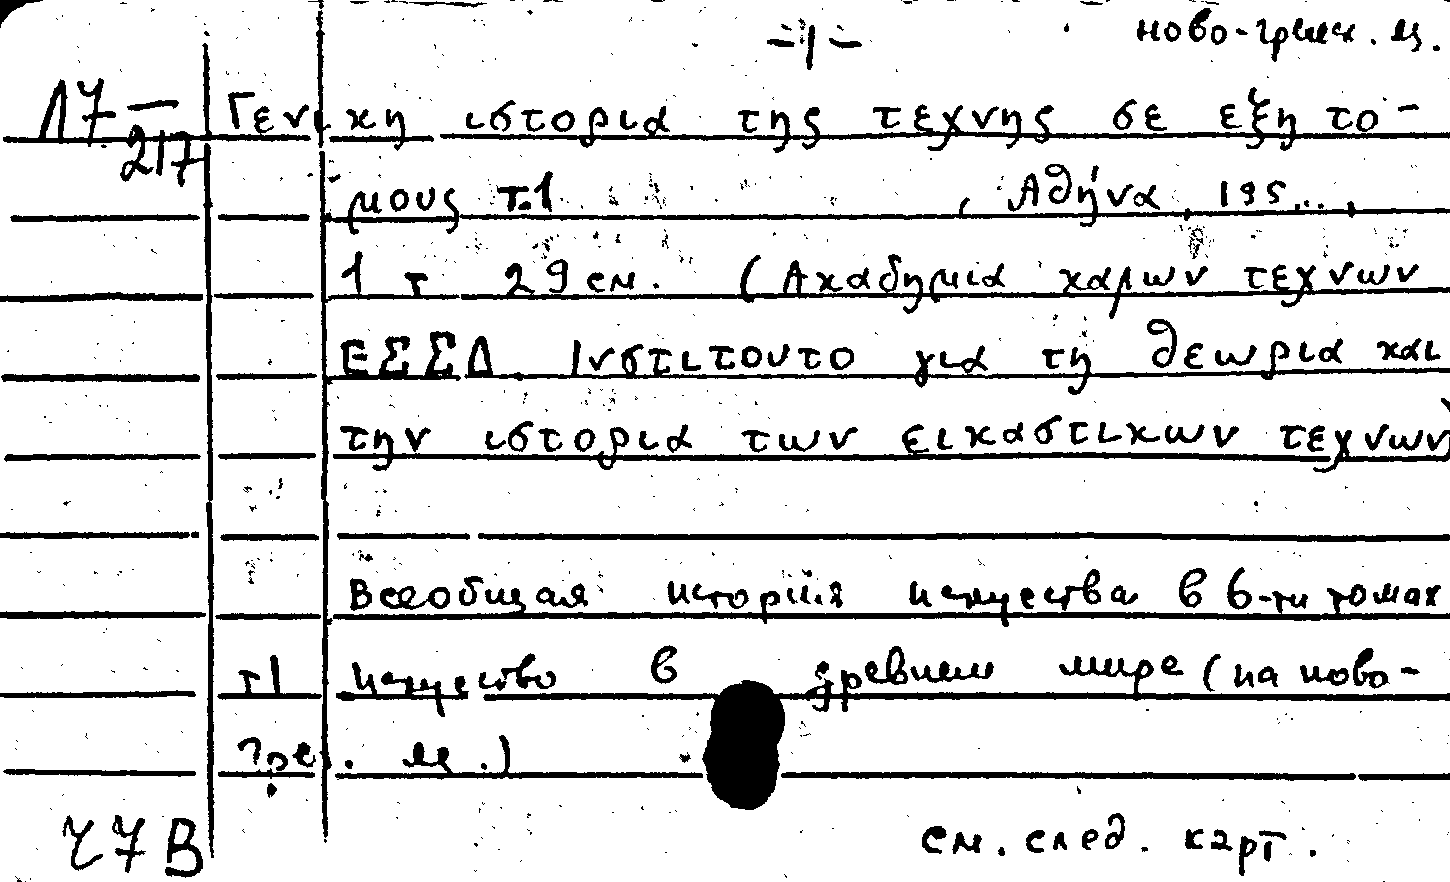 -1- ново-греч. яз.
Л7—217 Γενικη ιστορια της τεχνης σε εξη το-
μους т.1 , Αθήνα, 195...,
1 т 29 см. (Ακαδημια καλων τεχνων
ΕΣΣΔ. Ινστιτουτο για τη θεωρια και
την ιστορια των εικαστικων τεχνων)
Всеобщая история искусства в 6-ти томах
т1 искусство в древнем мире (на ново-
греч. яз.)
см. след. карт.